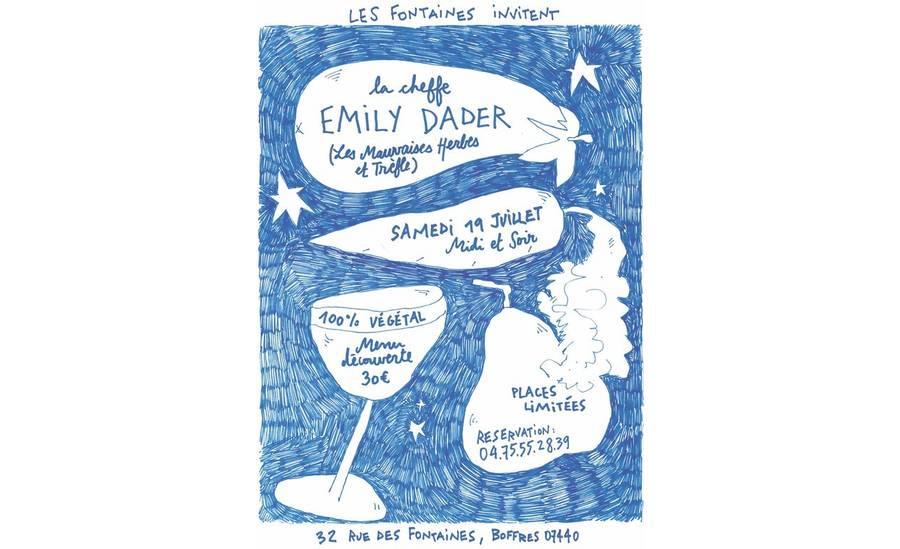 LES FONTAINES INVITENT
la cheffe
EMILY DADER
(Les Mauvaises Herbes
et Trèfle)
SAMEDI 19 JUILLET
Midi et Soir
100% VÉGÉTAL
Menu
découverte
30€
PLACES
LIMITÉES
RESERVATION:
04.75.55.28.39
32 RUE DES FONTAINES, BOFFRES 07440